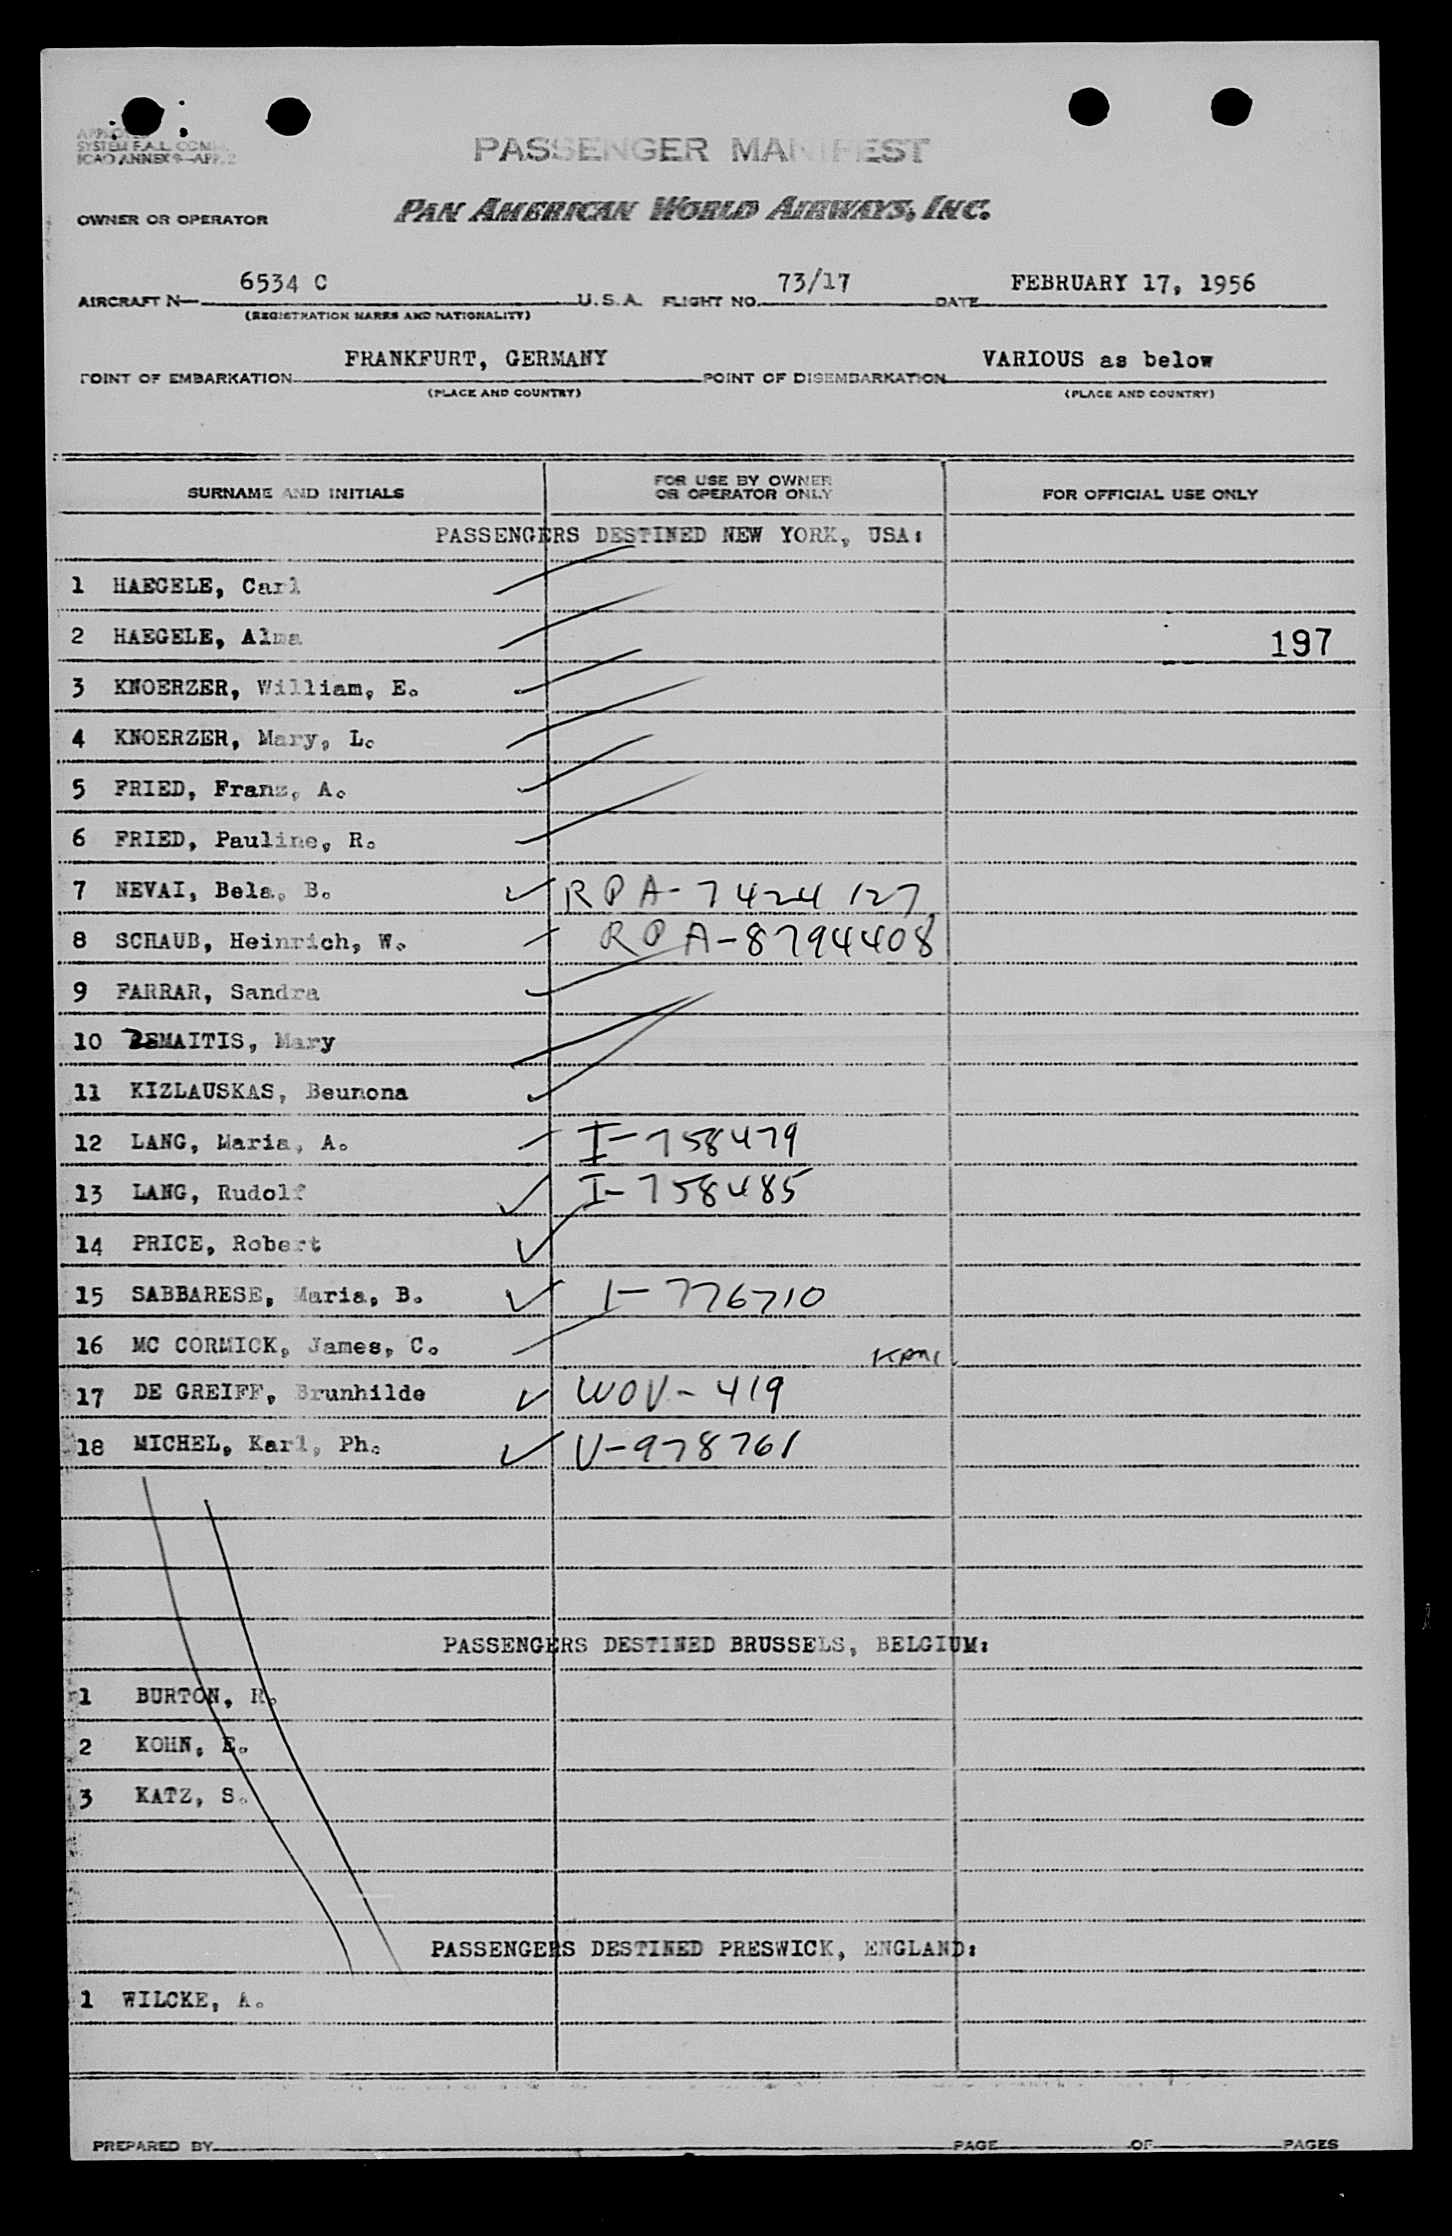 APPROVED
SYSTEM F.A.L. COMM.
ICAO ANNEX 9—APP. 2
PASSENGER MANIFEST
OWNER OR OPERATOR PAN AMERICAN WORLD AIRWAYS, INC.
AIRCRAFT N— 6534 C U.S.A. FLIGHT NO. 73/17 DATE FEBRUARY 17, 1956
(REGISTRATION MARKS AND NATIONALITY)
POINT OF EMBARKATION FRANKFURT, GERMANY POINT OF DISEMBARKATION VARIOUS as below
(PLACE AND COUNTRY) (PLACE AND COUNTRY)
SURNAME AND INITIALS FOR USE BY OWNER OR OPERATOR ONLY FOR OFFICIAL USE ONLY
PASSENGERS DESTINED NEW YORK, USA:
1 HAEGELE, Carl
2 HAEGELE, Alma 197
3 KNOERZER, William, E.
4 KNOERZER, Mary, L.
5 FRIED, Franz, A.
6 FRIED, Pauline, R.
7 NEVAI, Bela, B. RPA-7424127
8 SCHAUB, Heinrich, W. RPA-8794408
9 FARRAR, Sandra
10 ZEMAITIS, Mary
11 KIZLAUSKAS, Beunona
12 LANG, Maria, A. I-758479
13 LANG, Rudolf I-758485
14 PRICE, Robert
15 SABBARESE, Maria, B. I-776710
16 MC CORMICK, James, C.
17 DE GREIFF, Brunhilde WOV-419
18 MICHEL, Karl, Ph. V-978761
PASSENGERS DESTINED BRUSSELS, BELGIUM:
1 BURTON, R.
2 KOHN, E.
3 KATZ, S.
PASSENGERS DESTINED PRESWICK, ENGLAND:
1 WILCKE, A.
PREPARED BY PAGE OF PAGES